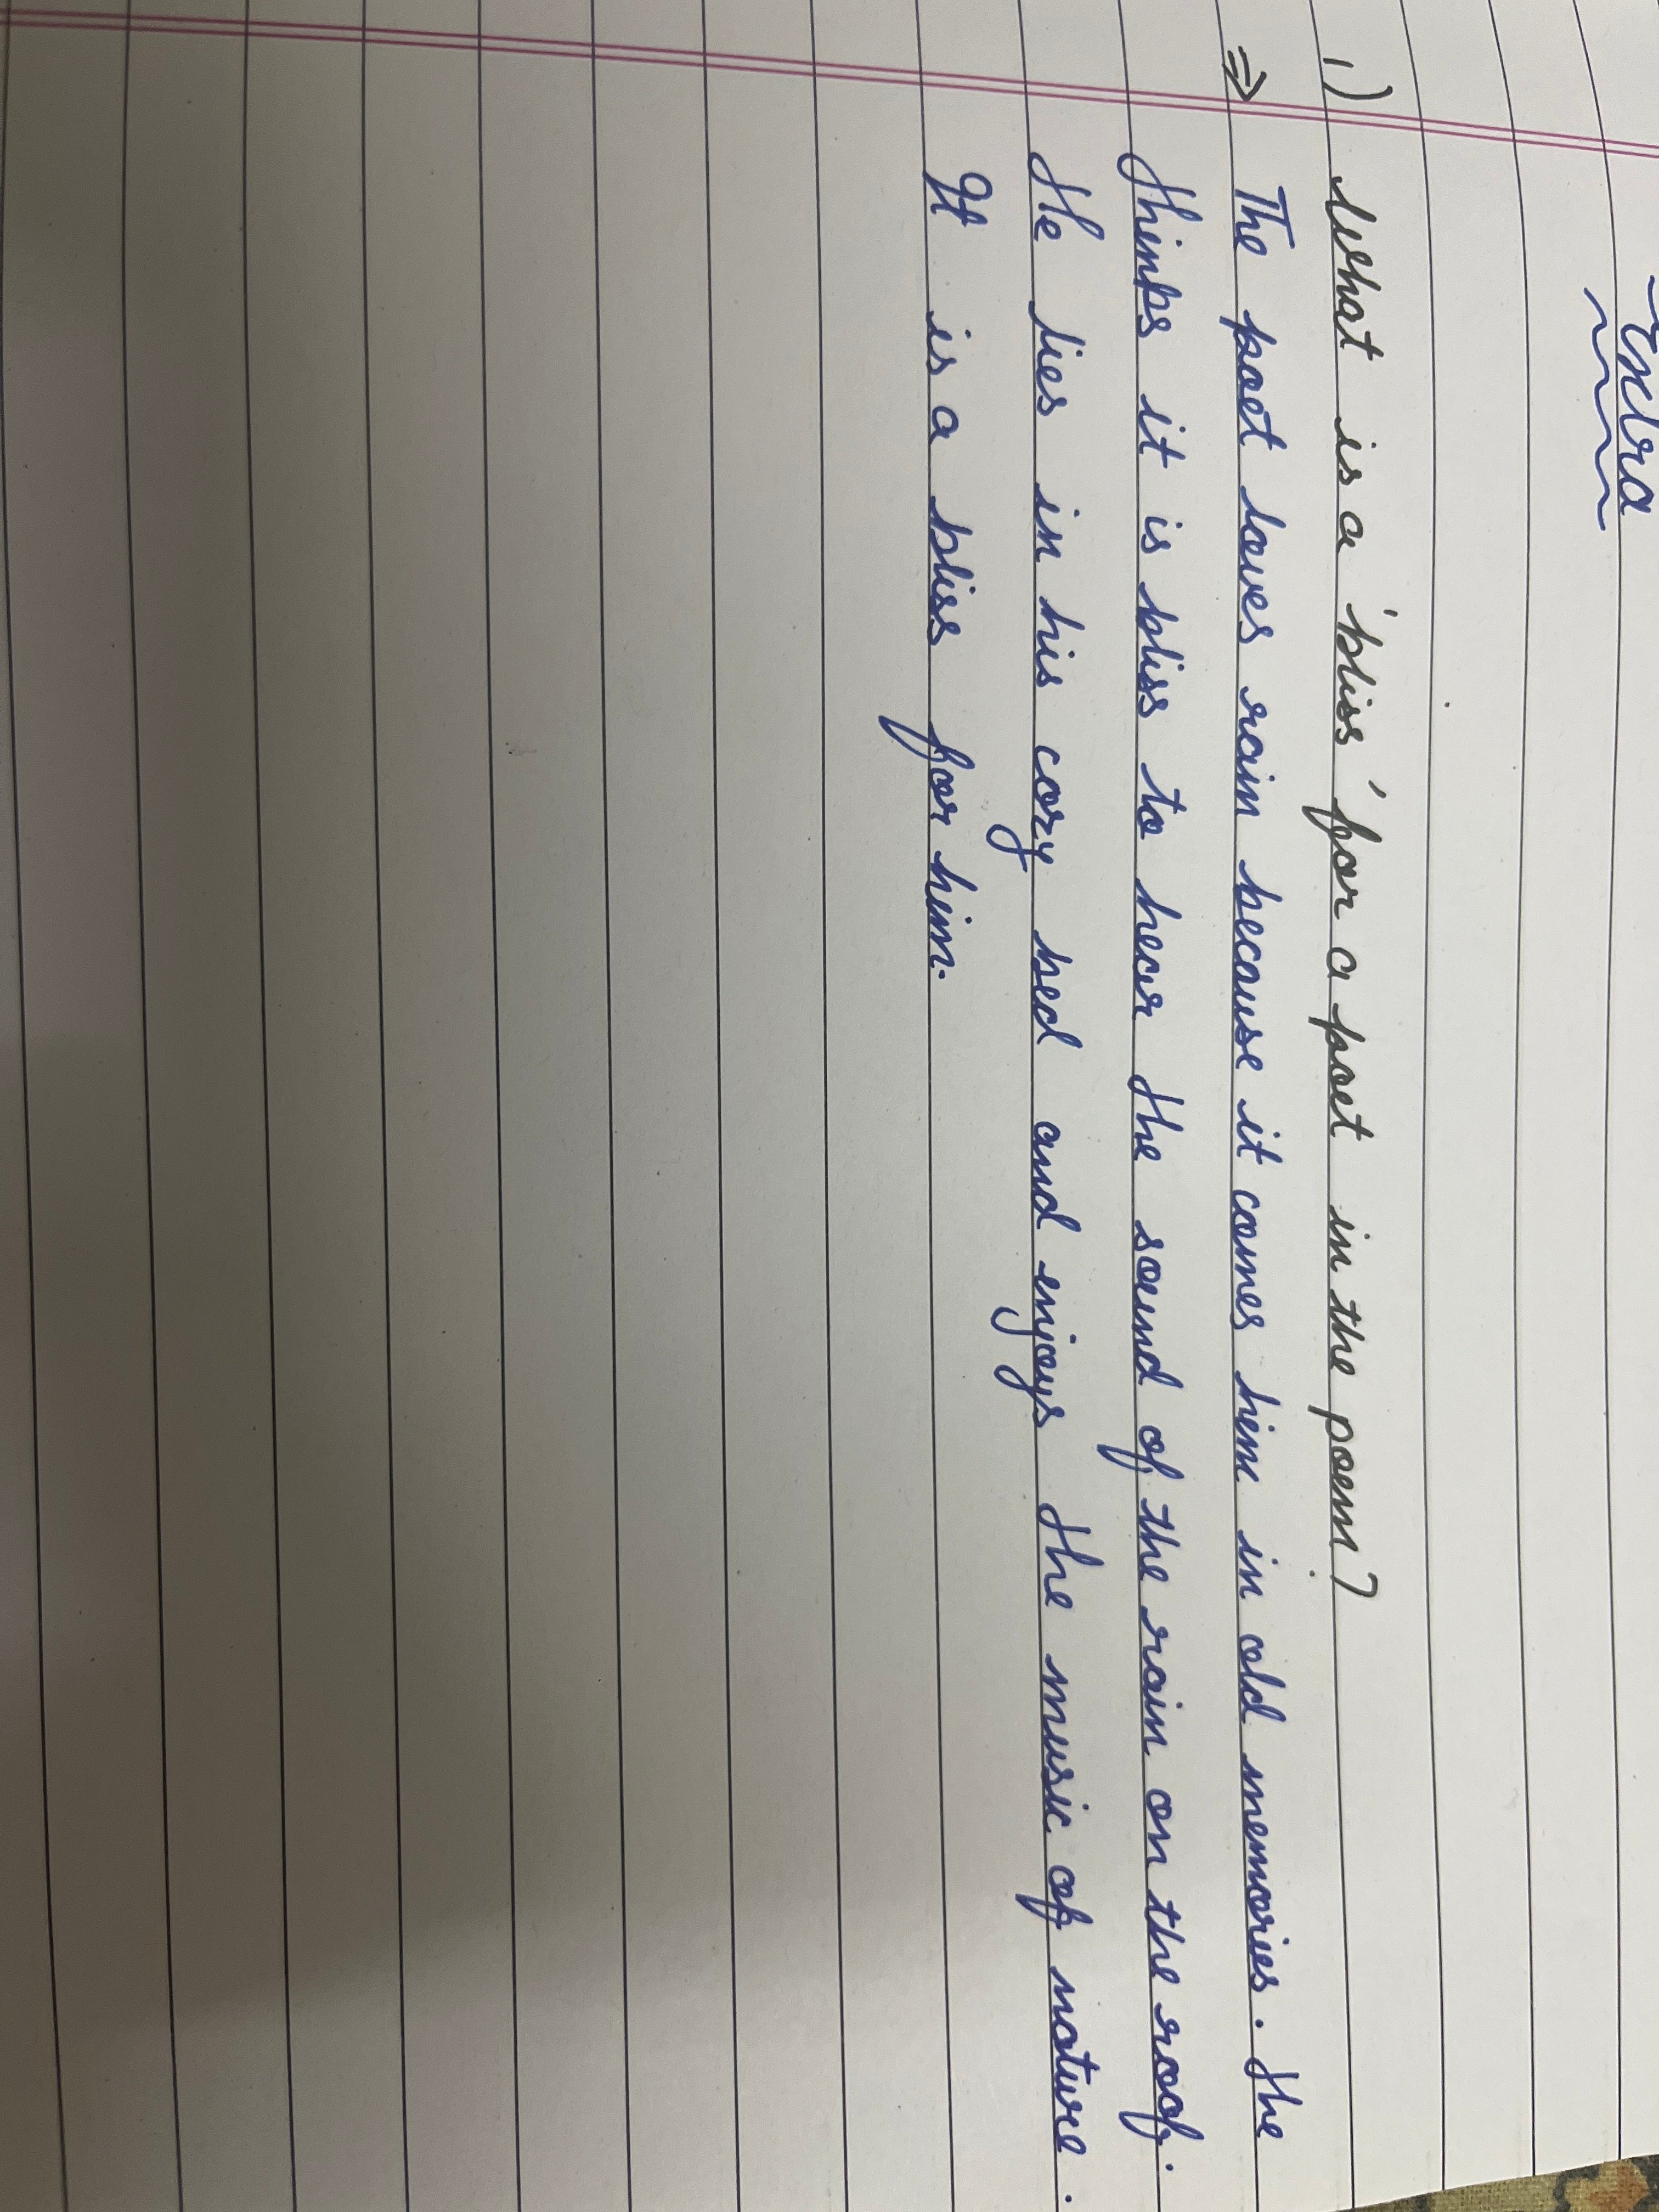 Extra
1) What is a 'bliss' for a poet in the poem?
⇒ The poet loves rain because it comes him in old memories. The
thinks it is bliss to hear the sound of the rain on the roof.
He lies in his cozy bed and enjoys the music of nature.
It is a bliss for him.